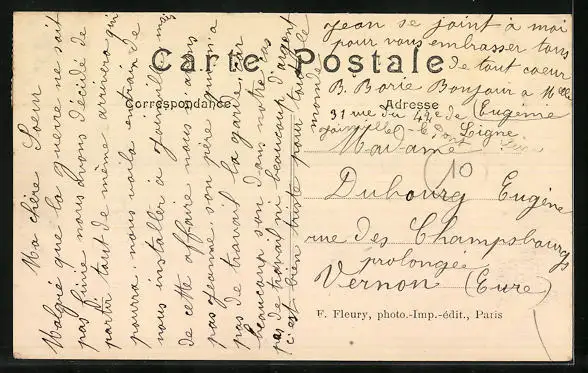 Carte Postale
Correspondance
Adresse
Ma chère Soeur
Malgré que la guerre ne soit
pas finie nous avons décidé de
partir tout de même arrivera qui
pourra. nous voila entrain de
nous installer a Joinville mes
de cette affaire nous n'avons
pas Jeanne son père qui n'a
pas de travail la garde car
beaucoup son dans notre cas
pas de travail ni beaucoup d'argent
c'est bien triste pour tout le
monde
Jean se joint à moi
pour vous embrasser tous
de tout coeur
B. Borie Bonjour a Melle
Eugénie
31 rue du 44e de Ligne
Joinville-le-Pont Seine
10
Madame
Dubourg Eugène
rue des Champsbourgs
prolongée
Vernon (Eure)
F. Fleury, photo.-Imp.-édit., Paris